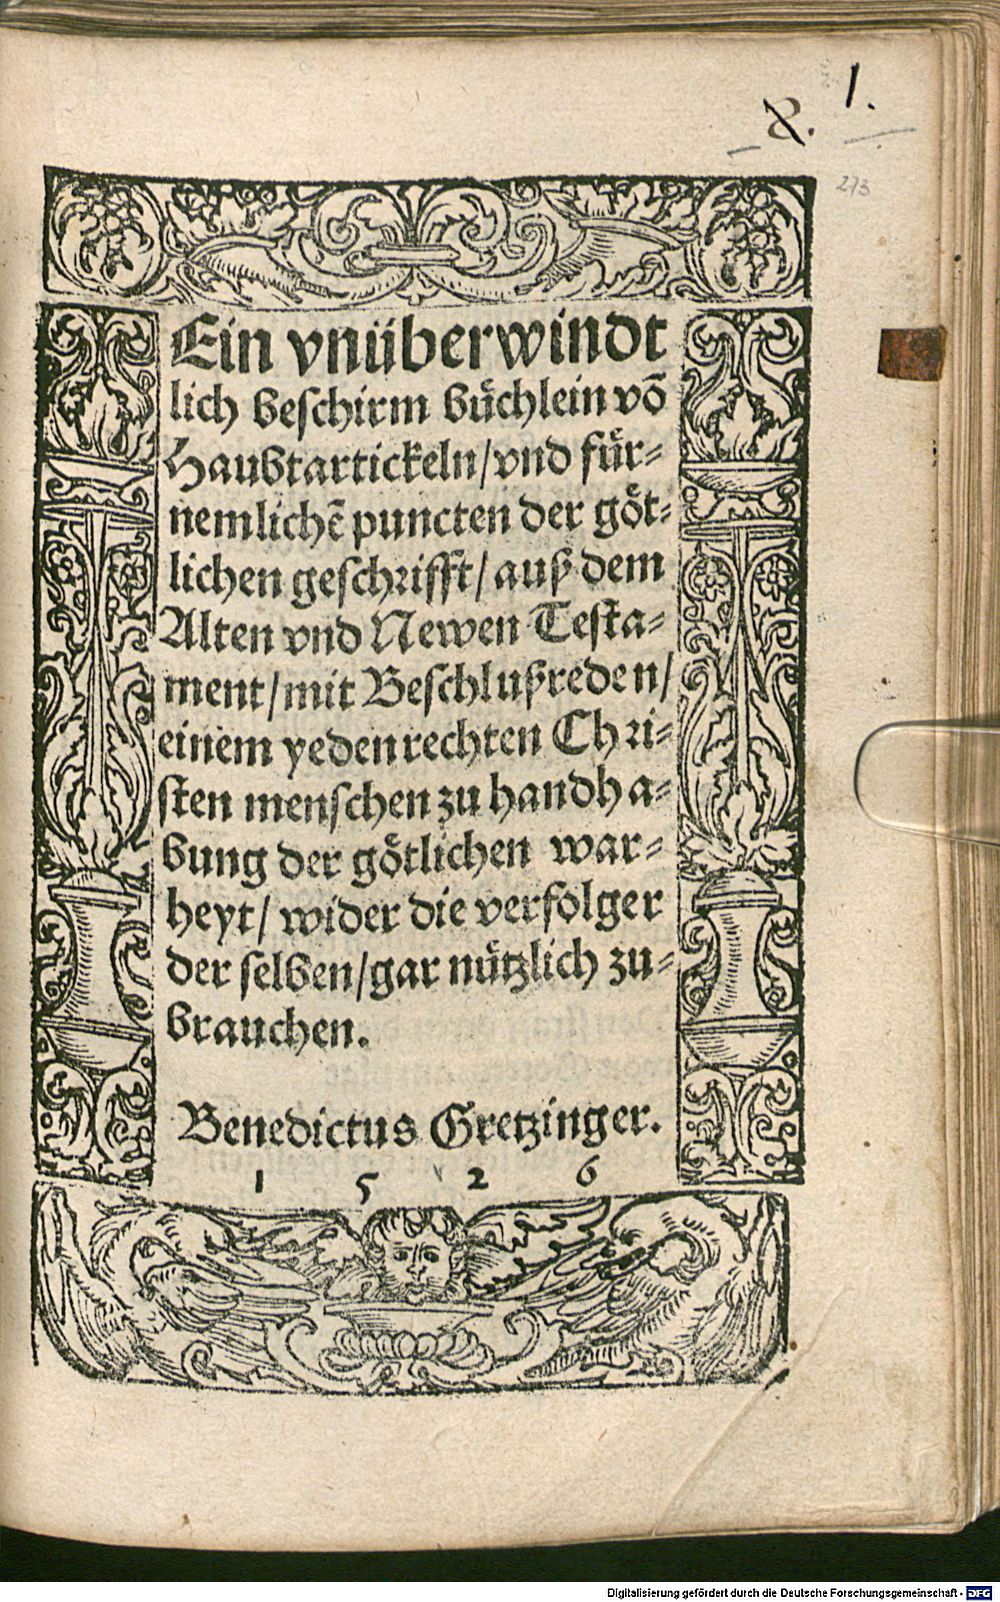 1.
8.
273
Ein vnüberwindt
lich beschirm bůchlein võ
Haubtartickeln/vnd fůr⸗
nemlichẽ puncten der gȯt⸗
lichen geschrifft/ auß dem
Alten vnd Newen Testa⸗
ment/mit Beschlußreden/
einem yeden rechten Chri⸗
sten menschen zu handha⸗
bung der gȯtlichen war⸗
heyt/ wider die verfolger
der selben/gar nůtzlich zu⸗
brauchen.
Benedictus Gretzinger.
1 5 2 6
Digitalisierung gefördert durch die Deutsche Forschungsgemeinschaft - DFG